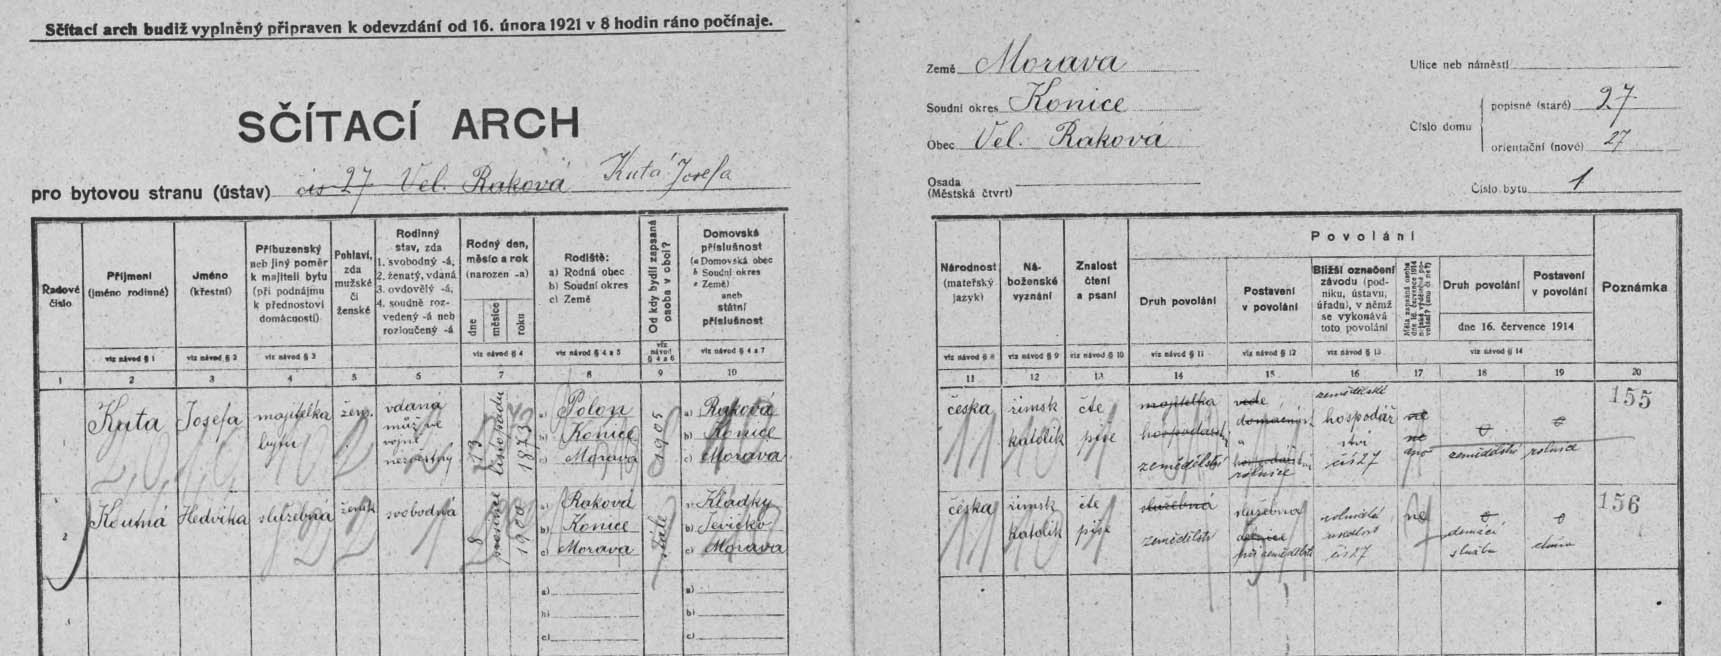 Sčítací arch budiž vyplněný připraven k odevzdání od 16. února 1921 v 8 hodin ráno počínaje.
SČÍTACÍ ARCH
pro bytovou stranu (ústav) čís 27 Vel. Raková Kutá Josefa
Země Morava
Soudní okres Konice
Obec Vel. Raková
Osada
(Městská čtvrť)
Ulice neb náměstí
Číslo domu
popisné (staré) 27
orientační (nové) 27
Číslo bytu 1
Řadové číslo
Příjmení (jméno rodinné)
viz návod § 1
Jméno (křestní)
viz návod § 2
Příbuzenský neb jiný poměr k majiteli bytu (při podnájmu k přednostovi domácnosti)
viz návod § 3
Pohlaví, zda mužské či ženské
Rodinný stav, zda
1. svobodný -á,
2. ženatý, vdaná
3. ovdovělý -á,
4. soudně rozvedený -á neb rozloučený -á
Rodný den, měsíc a rok (narozen -a)
dne
měsíce
roku
viz návod § 4
Rodiště:
a) Rodná obec
b) Soudní okres
c) Země
viz návod § 4 a 5
Od kdy bydlí zapsaná osoba v obci?
viz návod § 4 a 6
Domovská příslušnost
(a Domovská obec
b Soudní okres
c Země)
aneb státní příslušnost
viz návod § 4 a 7
1 2 3 4 5 6 7 8 9 10
1 Kuta Josefa majitelka bytu žen. vdaná muž ve vojně nezvěstný 13 listopadu 1873
a) Polom
b) Konice
c) Morava
1905
a) Raková
b) Konice
c) Morava
2 Koutná Hedvika služebná žensk svobodná 8 prosince 1900
a) Raková
b) Konice
c) Morava
a) Kladky
b) Jevíčko
c) Morava
a)
b)
c)
a)
b)
c)
Národnost (mateřský jazyk)
viz návod § 8
Náboženské vyznání
viz návod § 9
Znalost čtení a psaní
viz návod § 10
Povolání
Druh povolání
viz návod § 11
Postavení v povolání
viz návod § 12
Bližší označení závodu (podniku, ústavu, úřadu), v němž se vykonává toto povolání
viz návod § 13
Druh povolání
Postavení v povolání
dne 16. července 1914
viz návod § 14
Poznámka
11 12 13 14 15 16 17 18 19 20
česka římsk katolík čte píše majitelka hospodářství zemědělství vede domácnost a rolnice zemědělské hospodářství čís 27 ne ne ano 0 zemědělství 0 rolnice 155
česka římsk katolík čte píše služebná zemědělství služebná čís 27 ne 0 domácí služba 0 156